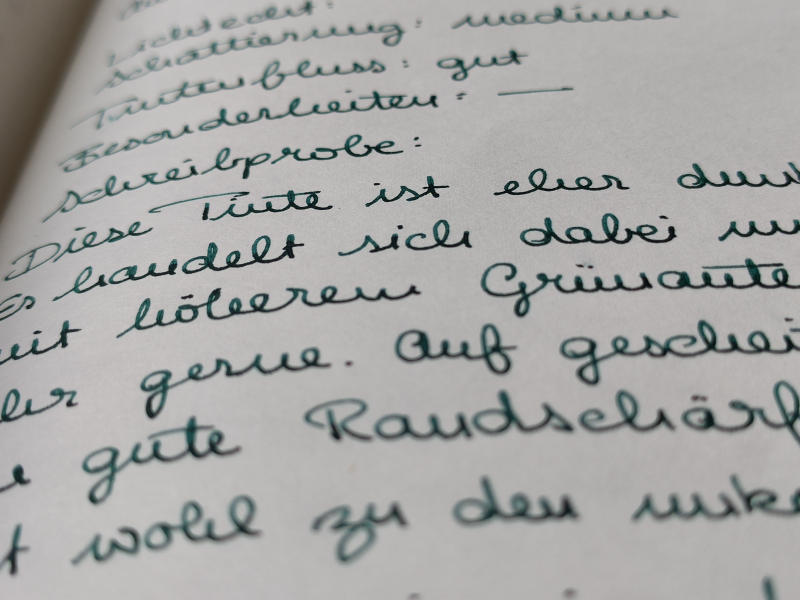 Lichtecht:
Schattierung: medium
Tintenfluss: gut
Besonderheiten: —
Schreibprobe:
Diese Tinte ist eher
Es handelt sich dabei
mit höherem Grünante
gerne. Auf geschei
gute Randschärf
wohl zu den